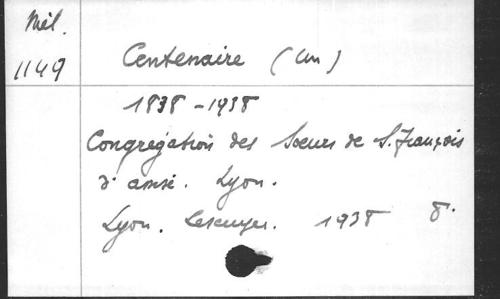 Mél.
1149
Centenaire (Un)
1838-1938
Congrégation des Soeurs de S. François
d'assise. Lyon.
Lyon. Lescuyer. 1938 8°.